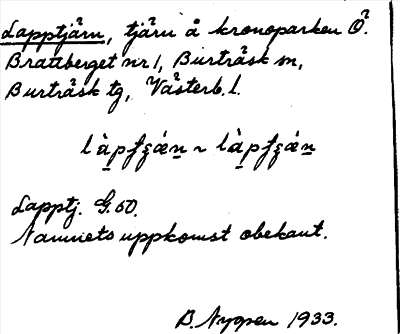 Lapptjärn, tjärn å kronoparken Ö.
Brattberget nr 1, Burträsk sn,
Burträsk tg, Västerb. l.
Lapptj. G.50.
Namnets uppkomst obekant.
B. Nygren 1933.